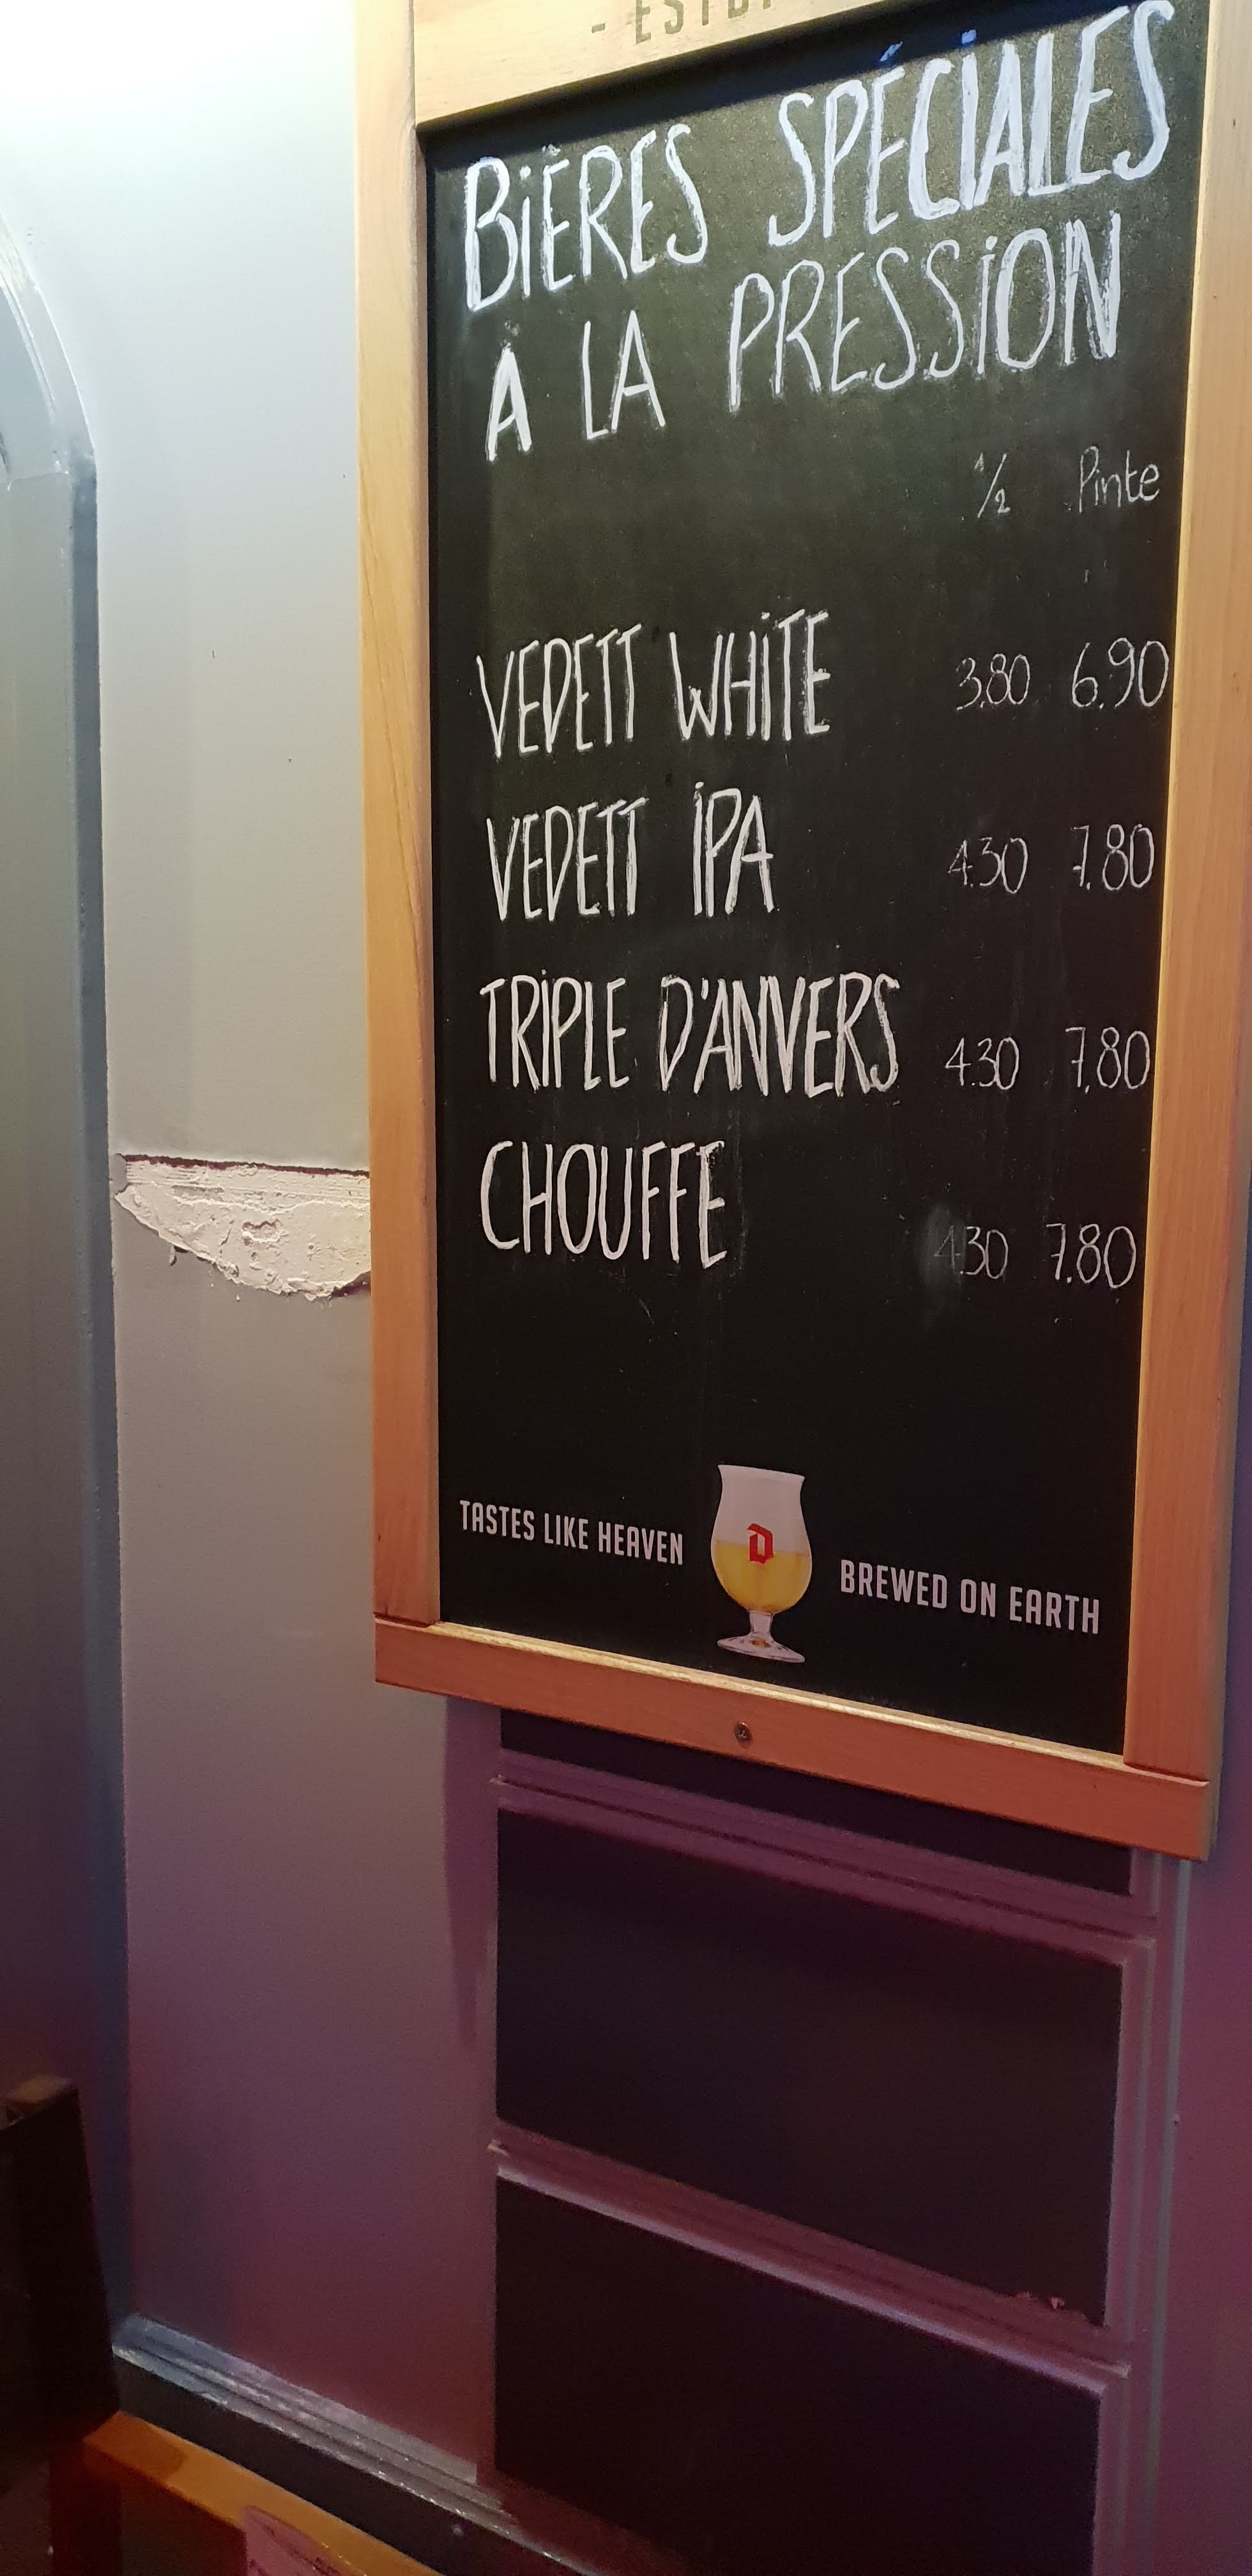 BIÈRES SPÉCIALES
À LA PRESSION
1/2 Pinte
VEDETT WHITE 3.80 6.90
VEDETT IPA 4.30 7.80
TRIPLE D'ANVERS 4.30 7.80
CHOUFFE 4.30 7.80
TASTES LIKE HEAVEN D BREWED ON EARTH